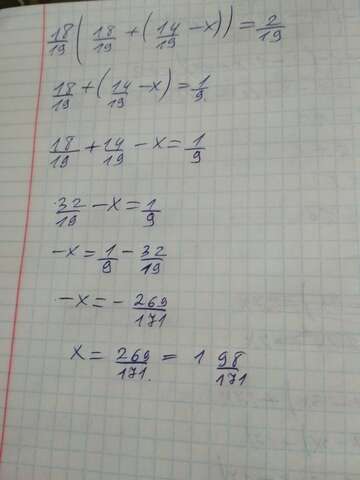 18/19 ( 18/19 + ( 14/19 - x ) ) = 2/19
18/19 + ( 14/19 - x ) = 1/9
18/19 + 14/19 - x = 1/9
32/19 - x = 1/9
-x = 1/9 - 32/19
-x = - 269/171
x = 269/171 = 1 98/171